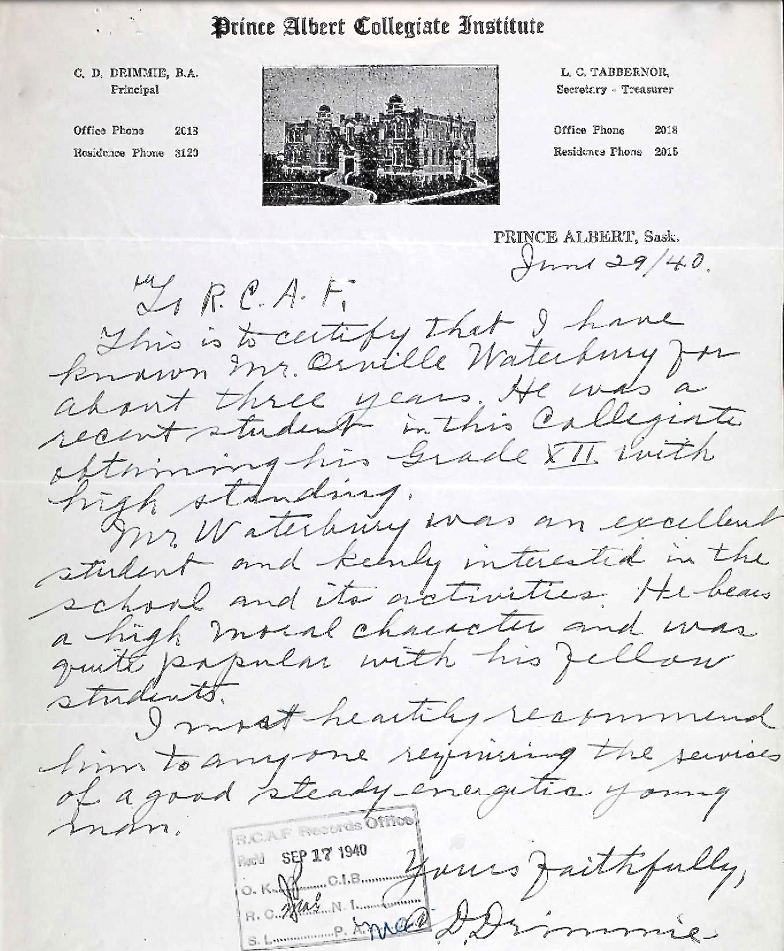 Prince Albert Collegiate Institute
C. D. DRIMMIE, B.A.
Principal
Office Phone 2013
Residence Phone 3120
L. C. TABBERNOR,
Secretary - Treasurer
Office Phone 2018
Residence Phone 2015
PRINCE ALBERT, Sask.
June 29/40.
To R. C. A. F.
This is to certify that I have
known Mr. Orville Waterbury for
about three years. He was a
recent student in this Collegiate
obtaining his Grade XII with
high standing.
Mr. Waterbury was an excellent
student and kenly interested in the
school and its activities. He bears
a high moral character and was
quite popular with his fellow
students.
I most heartily recommend
him to anyone requiring the services
of a good steady energetic young
man.
Yours faithfully,
C. D. Drimmie
R.C.A.F Records Office
Rec'd SEP 17 1940
O. K. C.I.B.
R. C. N. I.
S. I. P. A.